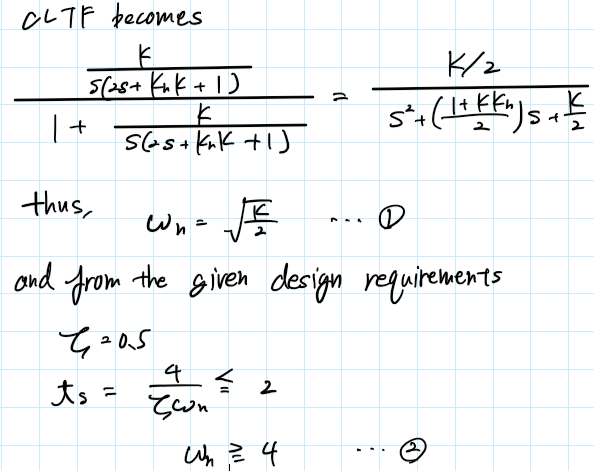 CLTF becomes
\frac{\frac{K}{s(2s + K_h K + 1)}}{1 + \frac{K}{s(2s + K_h K + 1)}} = \frac{K/2}{s^2 + (\frac{1 + K K_h}{2}) s + \frac{K}{2}}
thus, ω_n = \sqrt{\frac{K}{2}} ... ①
and from the given design requirements
ζ = 0.5
t_s = \frac{4}{ζω_n} ≦ 2
ω_n ≧ 4 ... ②